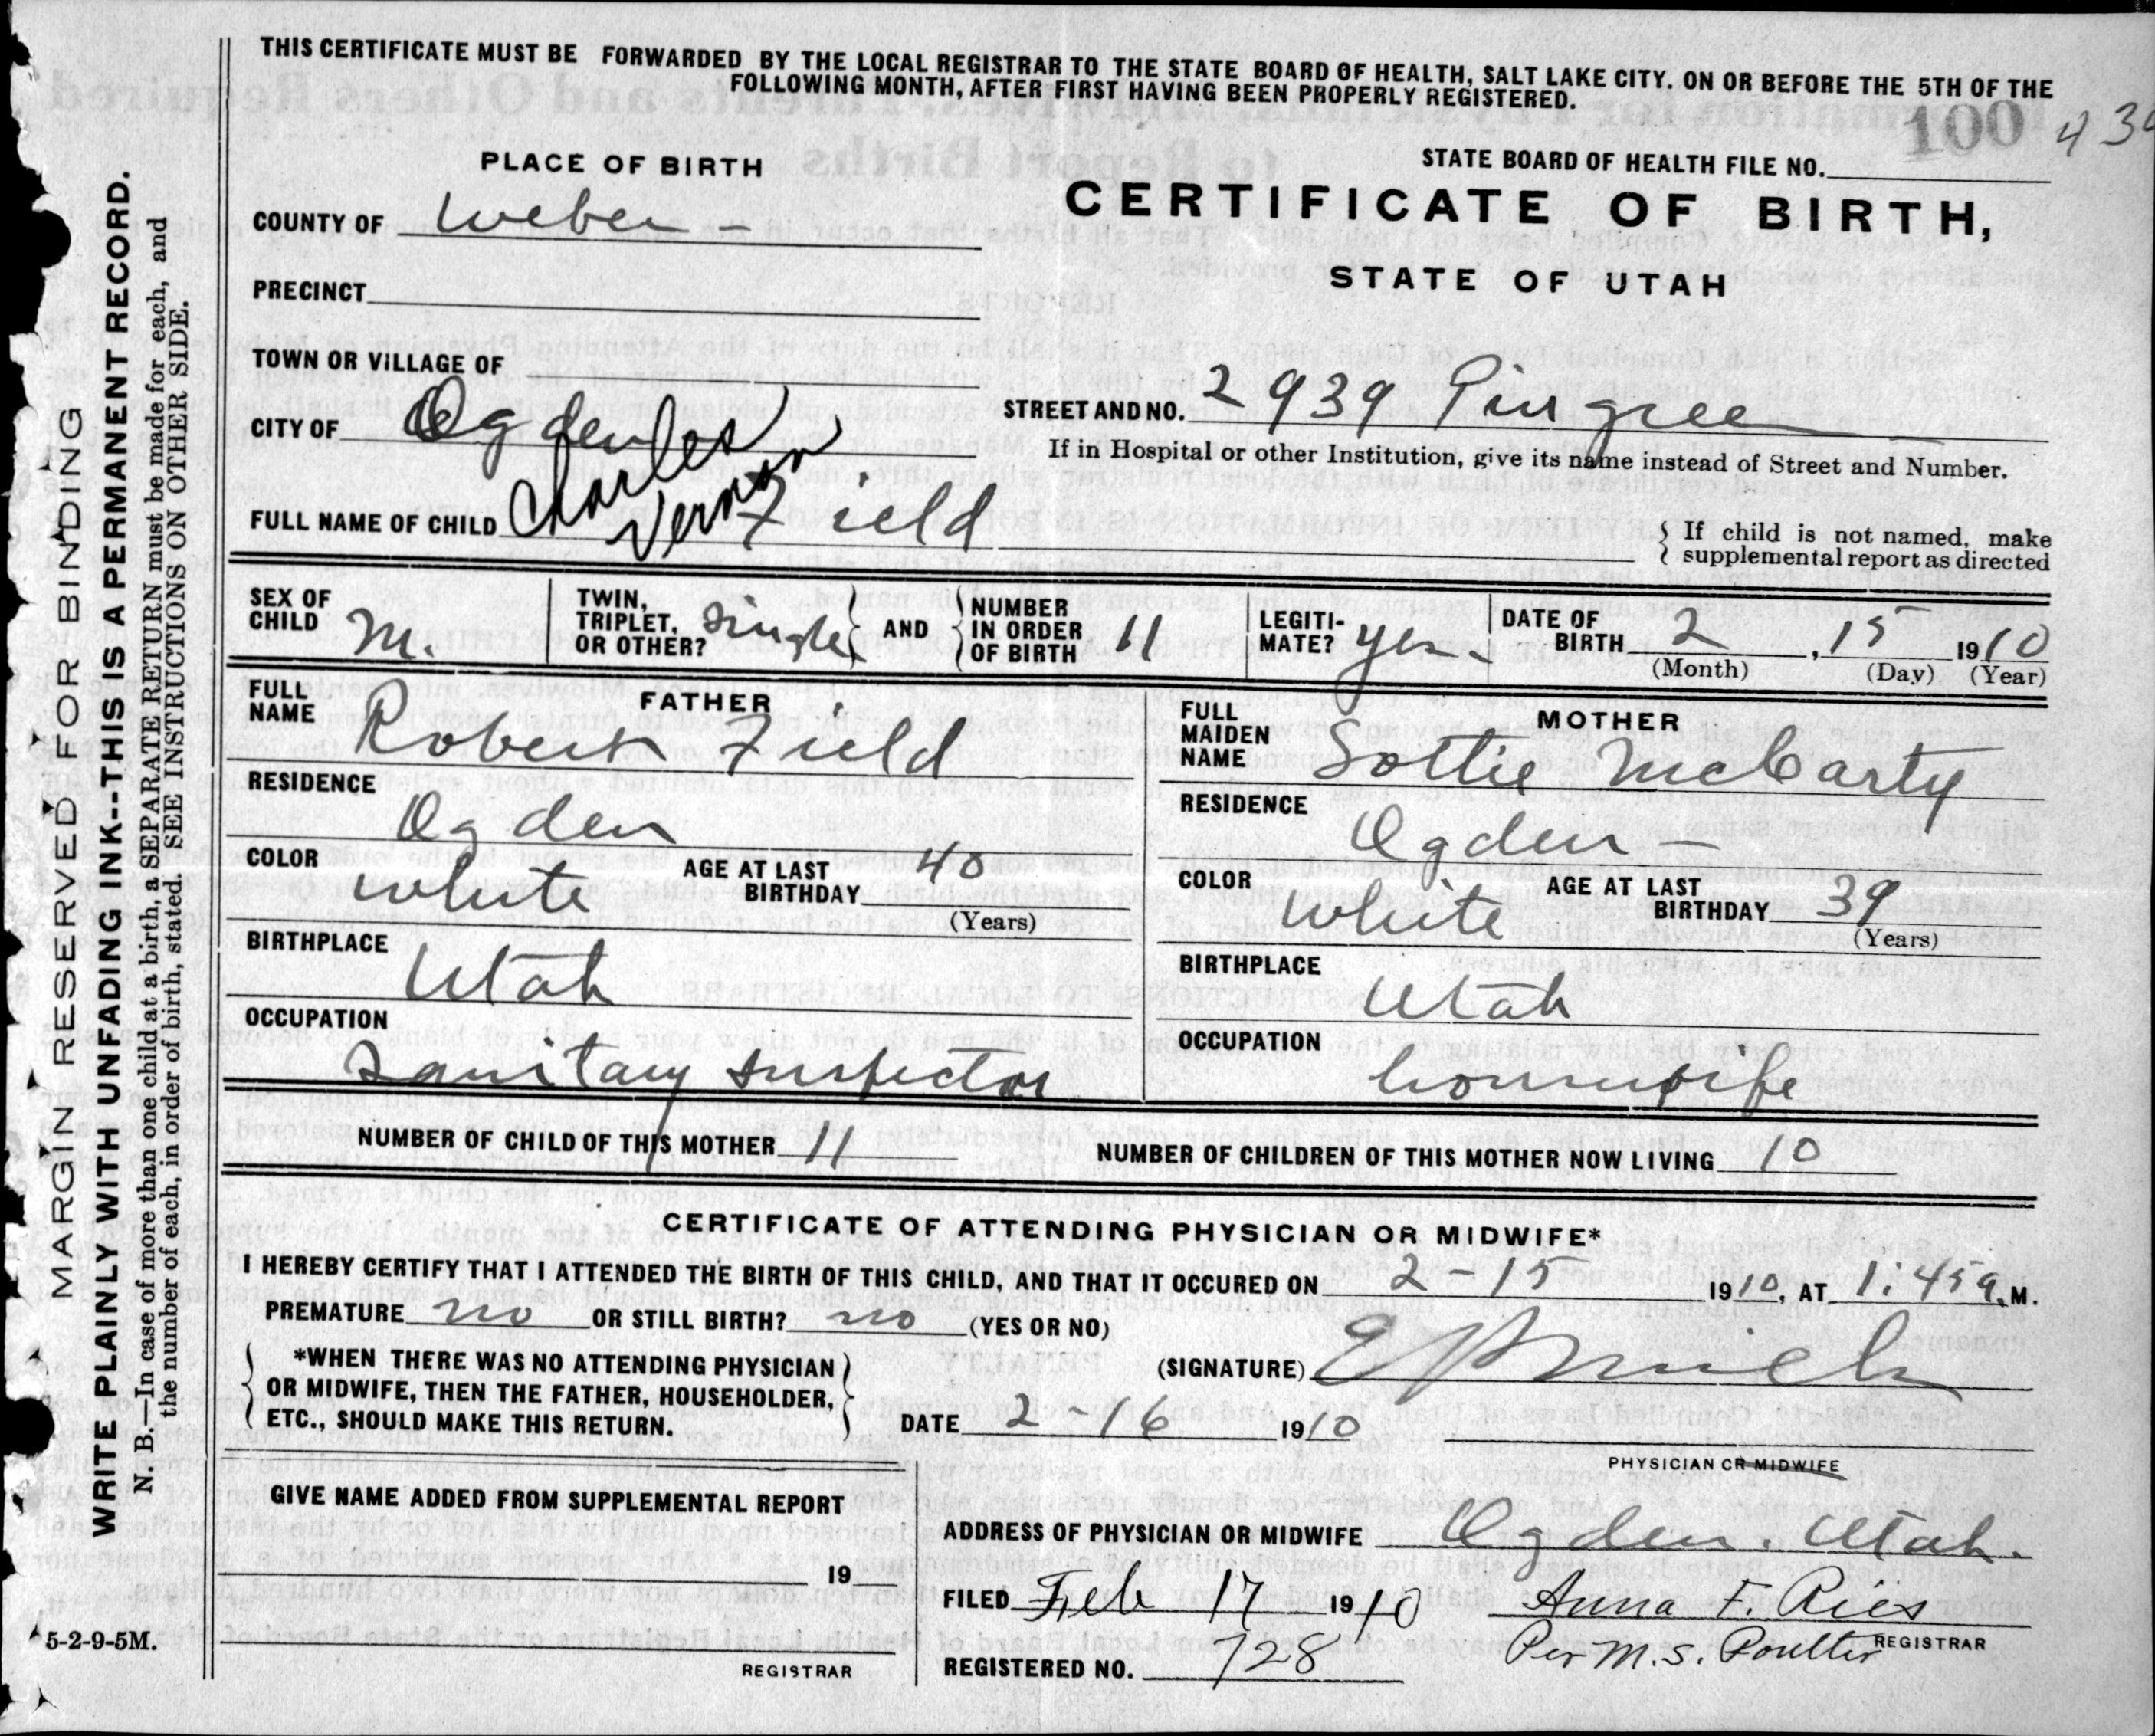 THIS CERTIFICATE MUST BE FORWARDED BY THE LOCAL REGISTRAR TO THE STATE BOARD OF HEALTH, SALT LAKE CITY. ON OR BEFORE THE 5TH OF THE
FOLLOWING MONTH, AFTER FIRST HAVING BEEN PROPERLY REGISTERED.
100
PLACE OF BIRTH
STATE BOARD OF HEALTH FILE NO.
CERTIFICATE OF BIRTH,
COUNTY OF Weber -
STATE OF UTAH
PRECINCT
TOWN OR VILLAGE OF
CITY OF Ogden
STREET AND NO. 2939 Pingree
If in Hospital or other Institution, give its name instead of Street and Number.
FULL NAME OF CHILD Charles Vernon Field
If child is not named, make
supplemental report as directed
SEX OF CHILD M.
TWIN, TRIPLET, OR OTHER? Single AND NUMBER IN ORDER OF BIRTH 11
LEGITIMATE? yes.
DATE OF BIRTH 2, 15 1910
(Month) (Day) (Year)
FATHER
FULL NAME Robert Field
RESIDENCE
Ogden
COLOR white AGE AT LAST BIRTHDAY 40
(Years)
BIRTHPLACE
Utah
OCCUPATION
Sanitary Inspector
MOTHER
FULL MAIDEN NAME Sottie McCarty
RESIDENCE
Ogden -
COLOR white AGE AT LAST BIRTHDAY 39
(Years)
BIRTHPLACE
Utah
OCCUPATION
housewife
NUMBER OF CHILD OF THIS MOTHER 11 NUMBER OF CHILDREN OF THIS MOTHER NOW LIVING 10
CERTIFICATE OF ATTENDING PHYSICIAN OR MIDWIFE*
I HEREBY CERTIFY THAT I ATTENDED THE BIRTH OF THIS CHILD, AND THAT IT OCCURED ON 2-15 1910, AT 1:45 a. M.
PREMATURE no OR STILL BIRTH? no (YES OR NO)
*WHEN THERE WAS NO ATTENDING PHYSICIAN
OR MIDWIFE, THEN THE FATHER, HOUSEHOLDER,
ETC., SHOULD MAKE THIS RETURN.
(SIGNATURE)
DATE 2-16 1910
PHYSICIAN OR MIDWIFE
GIVE NAME ADDED FROM SUPPLEMENTAL REPORT
19
REGISTRAR
ADDRESS OF PHYSICIAN OR MIDWIFE Ogden. Utah.
FILED Feb 17 1910 Anna F. Ries
REGISTRAR
Per M.S. Poulter
REGISTERED NO. 728
MARGIN RESERVED FOR BINDING
WRITE PLAINLY WITH UNFADING INK--THIS IS A PERMANENT RECORD.
N. B.—In case of more than one child at a birth, a SEPARATE RETURN must be made for each, and
the number of each, in order of birth, stated. SEE INSTRUCTIONS ON OTHER SIDE.
5-2-9-5M.